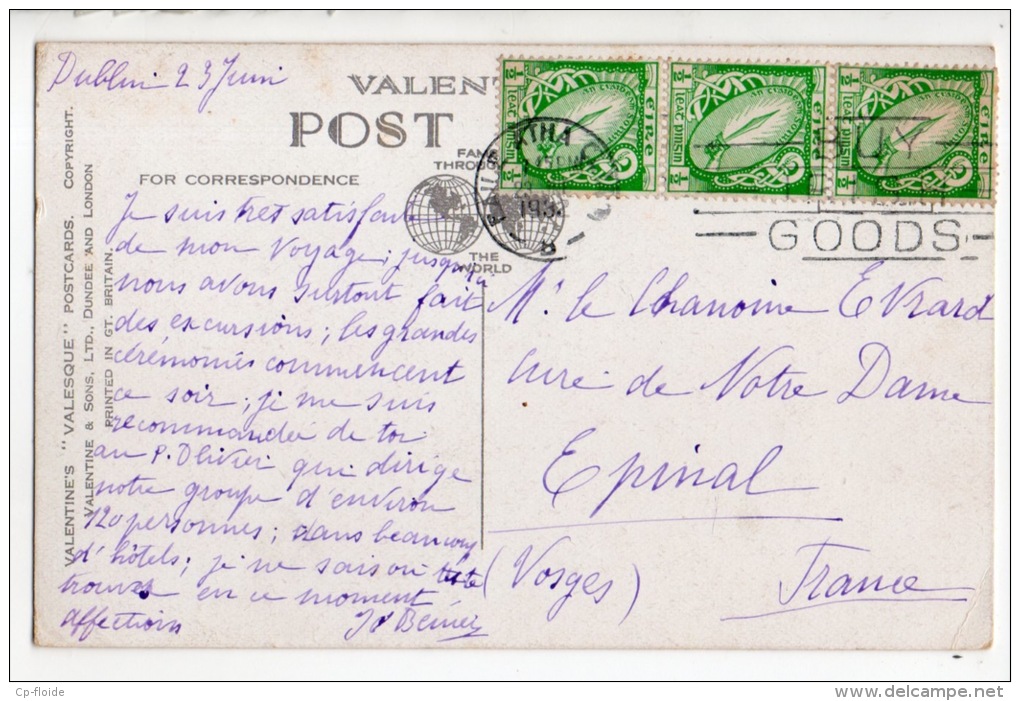 Dublin 23 Juin
VALENT
POST
FAM
THROUGH
THE
WORLD
FOR CORRESPONDENCE
VALENTINE'S "VALESQUE" POSTCARDS. COPYRIGHT.
VALENTINE & SONS, LTD., DUNDEE AND LONDON
PRINTED IN GT. BRITAIN.
Je suis très satisfaite
de mon voyage ; jusqu'ici
nous avons surtout fait
des excursions ; les grandes
cérémonies commencent
ce soir ; je me suis
recommandée de toi
au P. Olivier qui dirige
notre groupe d'environ
120 personnes ; dans beaucoup
d'hôtels ; je ne sais où
trouve en ce moment
affection
½ ½ ½
leat pinsin leat pinsin leat pinsin
éire éire éire
ÁTHA
193
GOODS
Mr le Chanoine Evrard
Curé de Notre Dame
Epinal
(Vosges) France
Cp-floide
delcampe.net